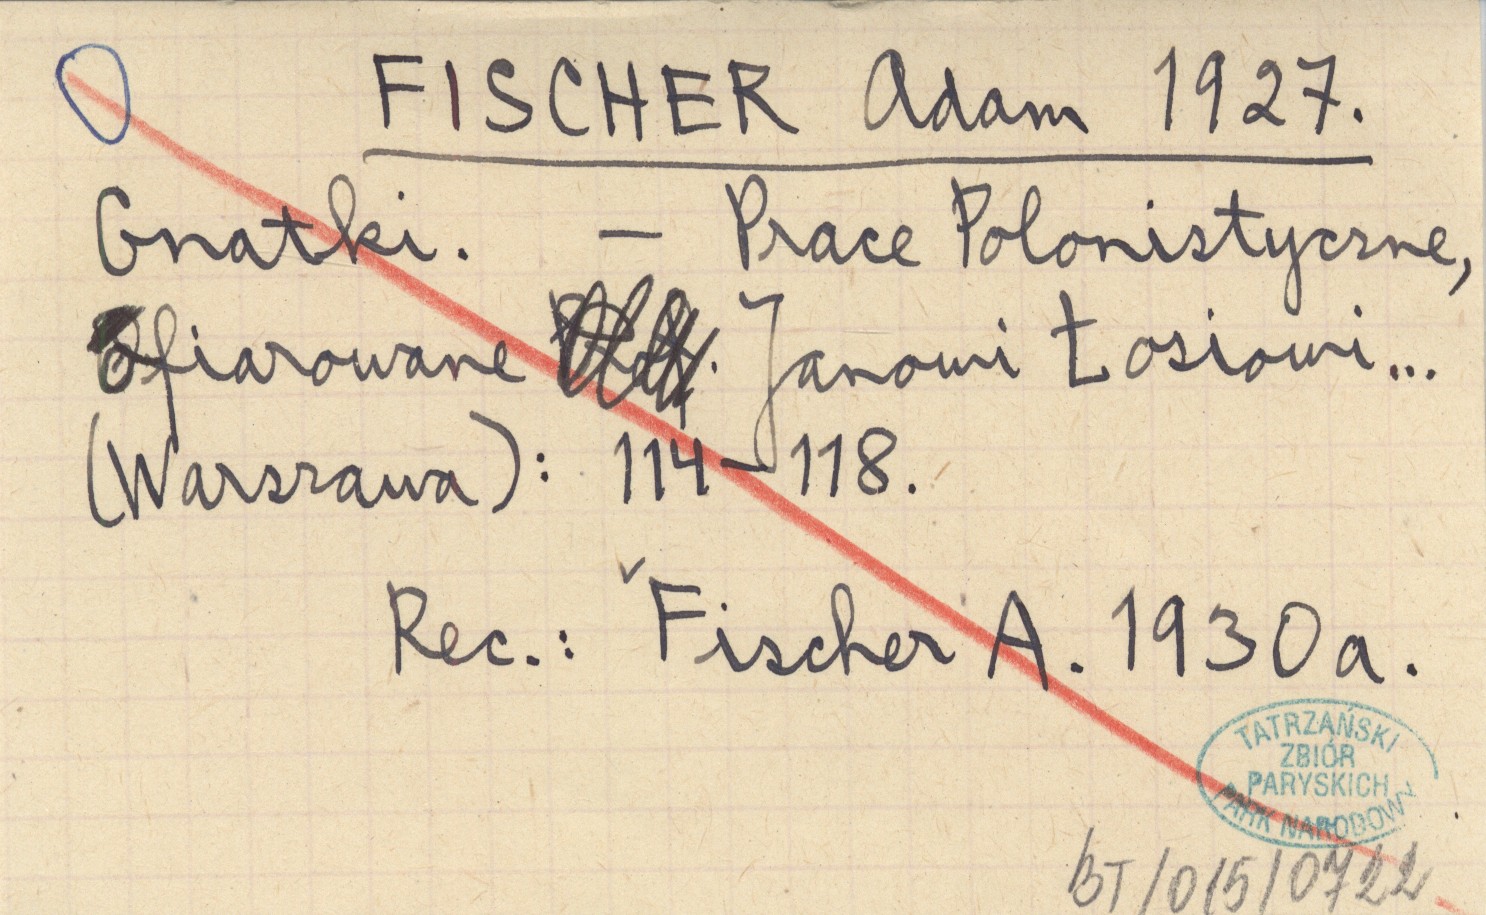 FISCHER Adam 1927.
Gnatki. — Prace Polonistyczne,
Ofiarowane Janowi Łosiowi...
(Warszawa): 114-118.
Rec.: Fischer A. 1930a.
TATRZAŃSKI
ZBIÓR
PARYSKICH
PARK NARODOWY
BT/015/0722